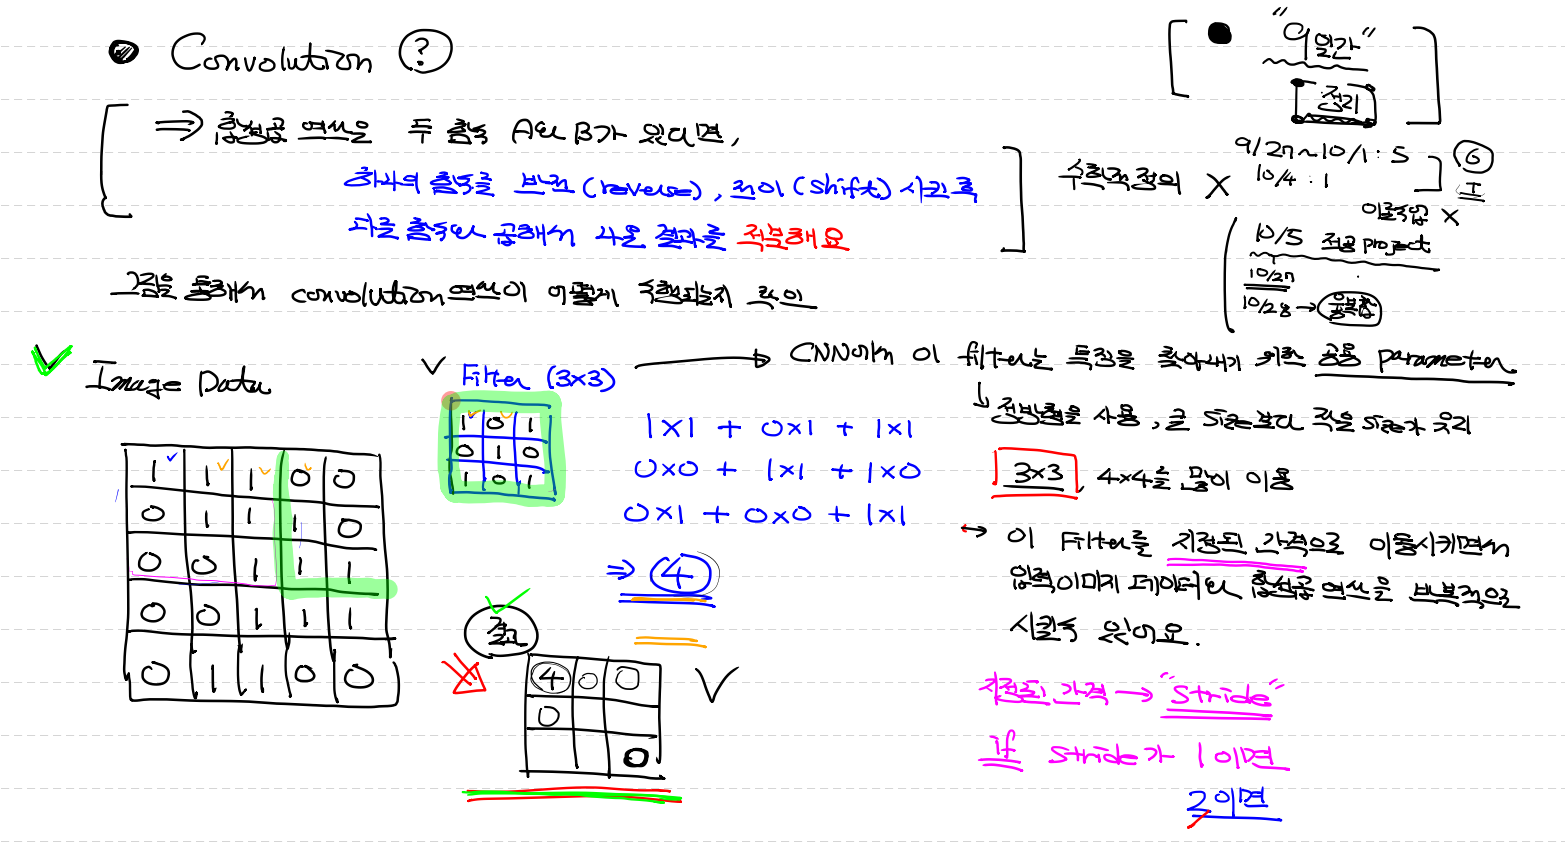 ● Convolution ?
⇒ 합성곱 연산은 두 함수 A와 B가 있다면,
하나의 함수를 반전(reverse), 전이(shift) 시킨 후
다른 함수와 곱해서 나온 결과를 적분해요
수학적 정의 X
그림을 통해서 convolution 연산이 어떻게 수행되는지 확인
● "9일간"
정리
9/27~10/1 : 5
10/4 : 1
6
I
이론수업 X
10/5 전공 project
10/27
10/28 →
Image Data
1 1 1 0 0
0 1 1 1 0
0 0 1 1 1
0 0 1 1 1
0 1 1 0 0
Filter (3×3)
1 0 1
0 1 0
1 0 1
1×1 + 0×1 + 1×1
0×0 + 1×1 + 1×0
0×1 + 0×0 + 1×1
⇒ 4
결과
4 0 0
0
0
→ CNN에서 이 filter는 특징을 찾아내기 위한 공용 parameter
↳ 정방형을 사용, 큰 size보다 작은 size가 유리
3×3, 4×4를 많이 이용
↦ 이 Filter를 지정된 간격으로 이동시키면서
입력이미지 데이터와 합성곱 연산을 반복적으로
시킬 수 있어요.
지정된 간격 → "stride"
if stride가 1이면
2이면